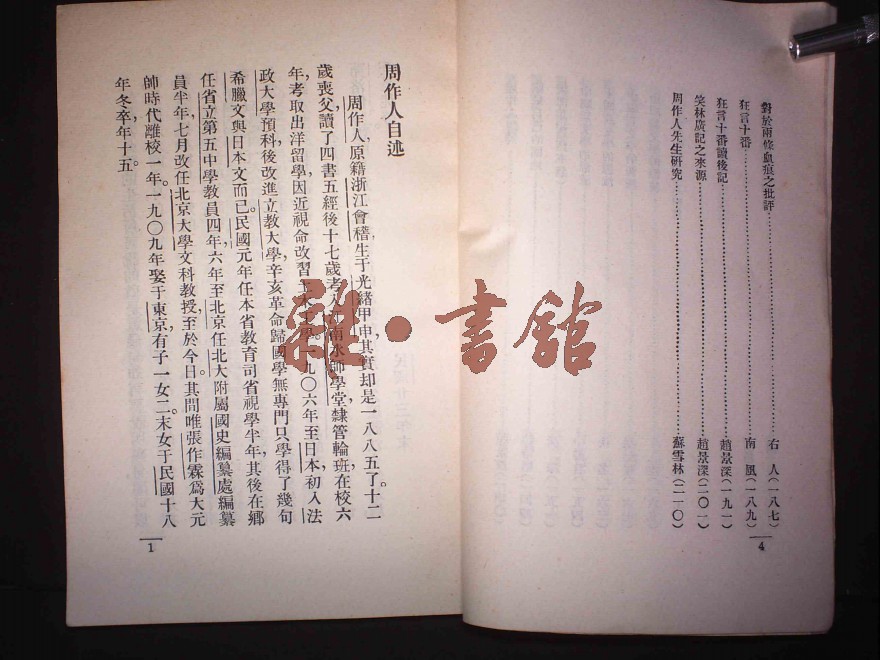 對於兩條血痕之批評……………………右　人(一八七)
狂言十番……………………南　風(一八九)
狂言十番讀後記……………………趙景深(一九一)
笑林廣記之來源……………………趙景深(二〇一)
周作人先生研究……………………蘇雪林(二一〇)
4
周作人自述
周作人,原籍浙江會稽,生于光緒甲申,其實却是一八八五了。十二
歲喪父,讀了四書五經後十七歲考入 南水師學堂,隸管輪班,在校六
年,考取出洋留學,因近視命改習土木 九〇六年至日本,初入法
政大學預科,後改進立教大學,辛亥革命歸國,學無專門,只學得了幾句
希臘文與日本文而已。民國元年任本省教育司省視學半年,其後在鄉
任省立第五中學教員四年,六年至北京任北大附屬國史編纂處編纂
員半年,七月改任北京大學文科教授,至於今日。其間唯張作霖爲大元
帥時代離校一年。一九〇九年娶于東京,有子一女二。末女于民國十八
年冬卒,年十五。
1
雜·書館